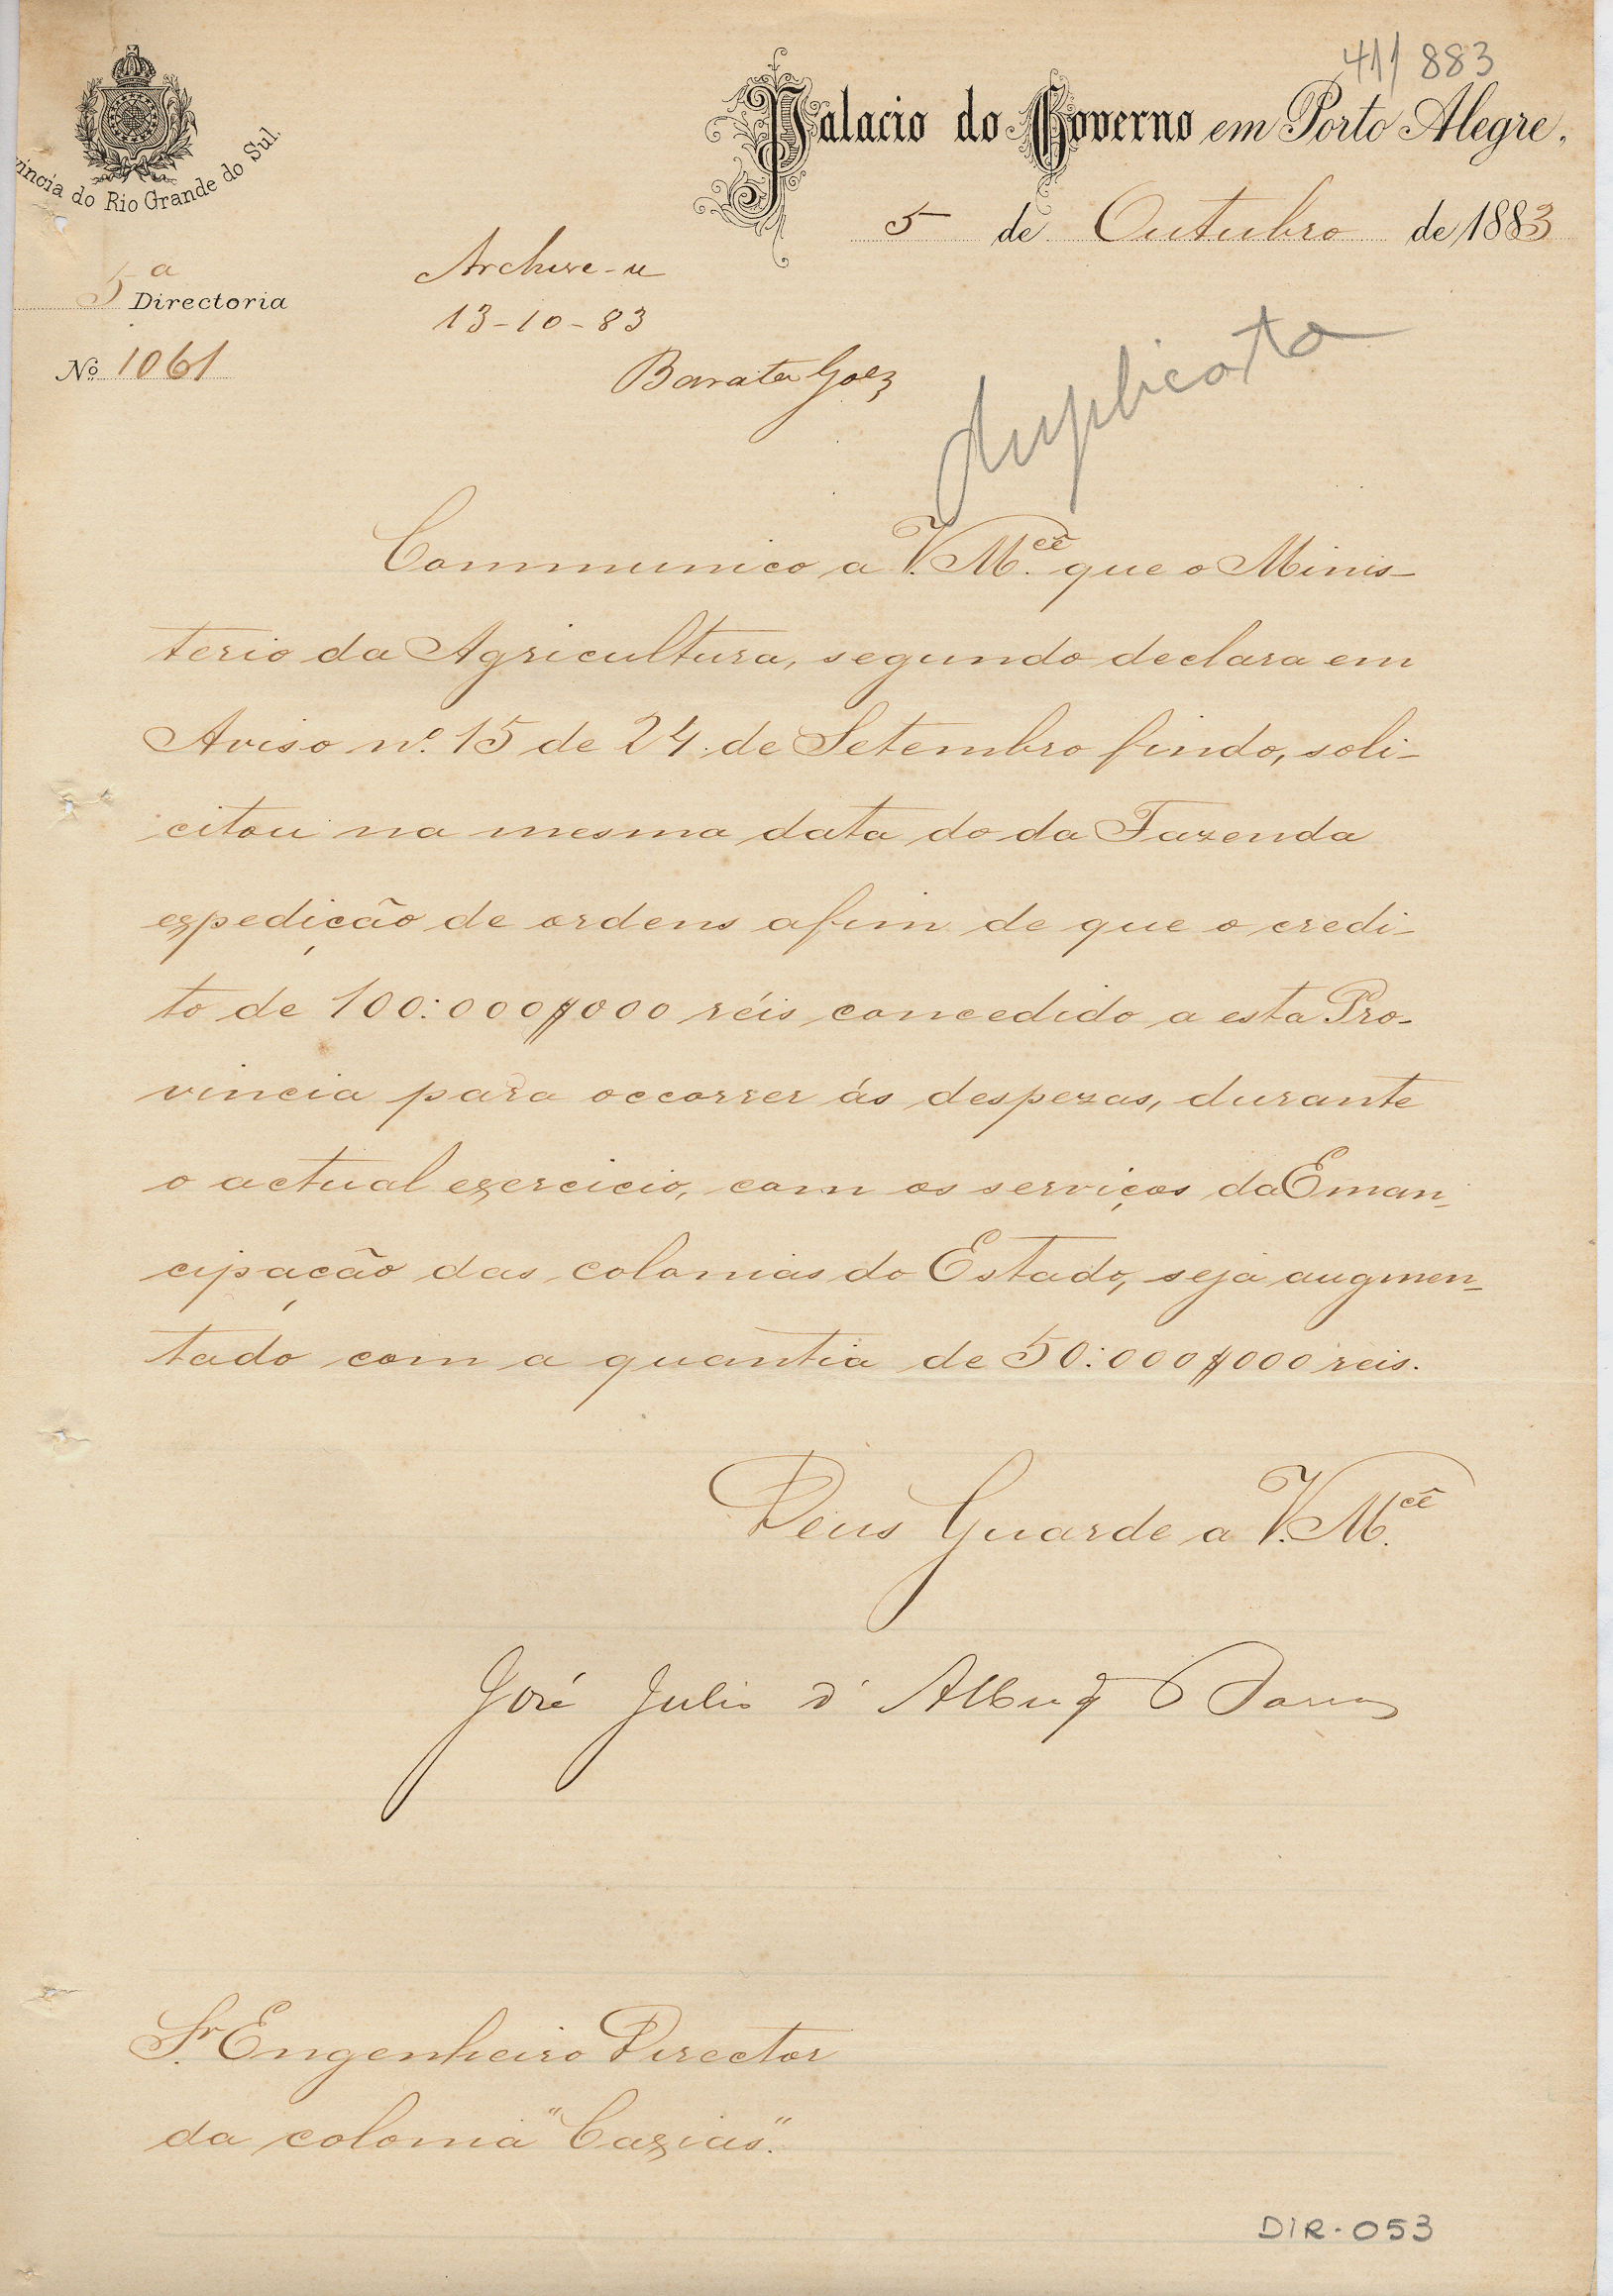 41/883
Palacio do Governo em Porto Alegre,
víncia do Rio Grande do Sul.
5 de Outubro de 1883
5ª Directoria
Nº 1061
Archive-se
13-10-83
Barata Goez
duplicata
Communico a V. M.cê que o Minis-
terio da Agricultura, segundo declara em
Aviso nº 15 de 24 de Setembro findo, soli-
citou na mesma data do da Fazenda
expedição de ordens afim de que o credi-
to de 100:000$000 réis concedido a esta Pro-
vincia para occorrer ás despezas, durante
o actual exercicio, com os serviços da Eman-
cipação das colonias do Estado, seja augmen-
tado com a quantia de 50:000$000 reis.
Deus Guarde a V. M.cê
José Julio d'Albuq B Barros
Sr. Engenheiro Director
da colonia "Caxias".
DIR-053